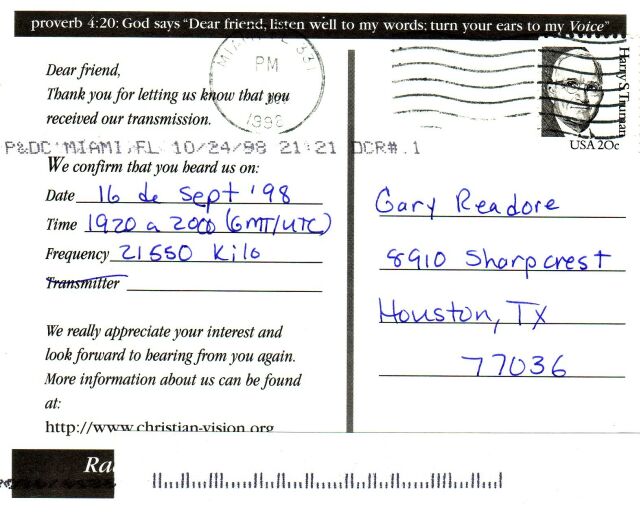 proverb 4:20: God says "Dear friend, listen well to my words: turn your ears to my Voice"
MIAMI, FL 331
PM
1998
Harry S Truman
USA 20c
Dear friend,
Thank you for letting us know that you
received our transmission.
P&DC MIAMI, FL 10/24/98 21:21 DCR#.1
We confirm that you heard us on:
Date 16 de Sept '98
Time 1920 a 2000 (GMT/UTC)
Frequency 21550 Kilo
Transmitter
We really appreciate your interest and
look forward to hearing from you again.
More information about us can be found
at:
http://www.christian-vision.org
Gary Readore
8910 Sharpcrest
Houston, TX
77036